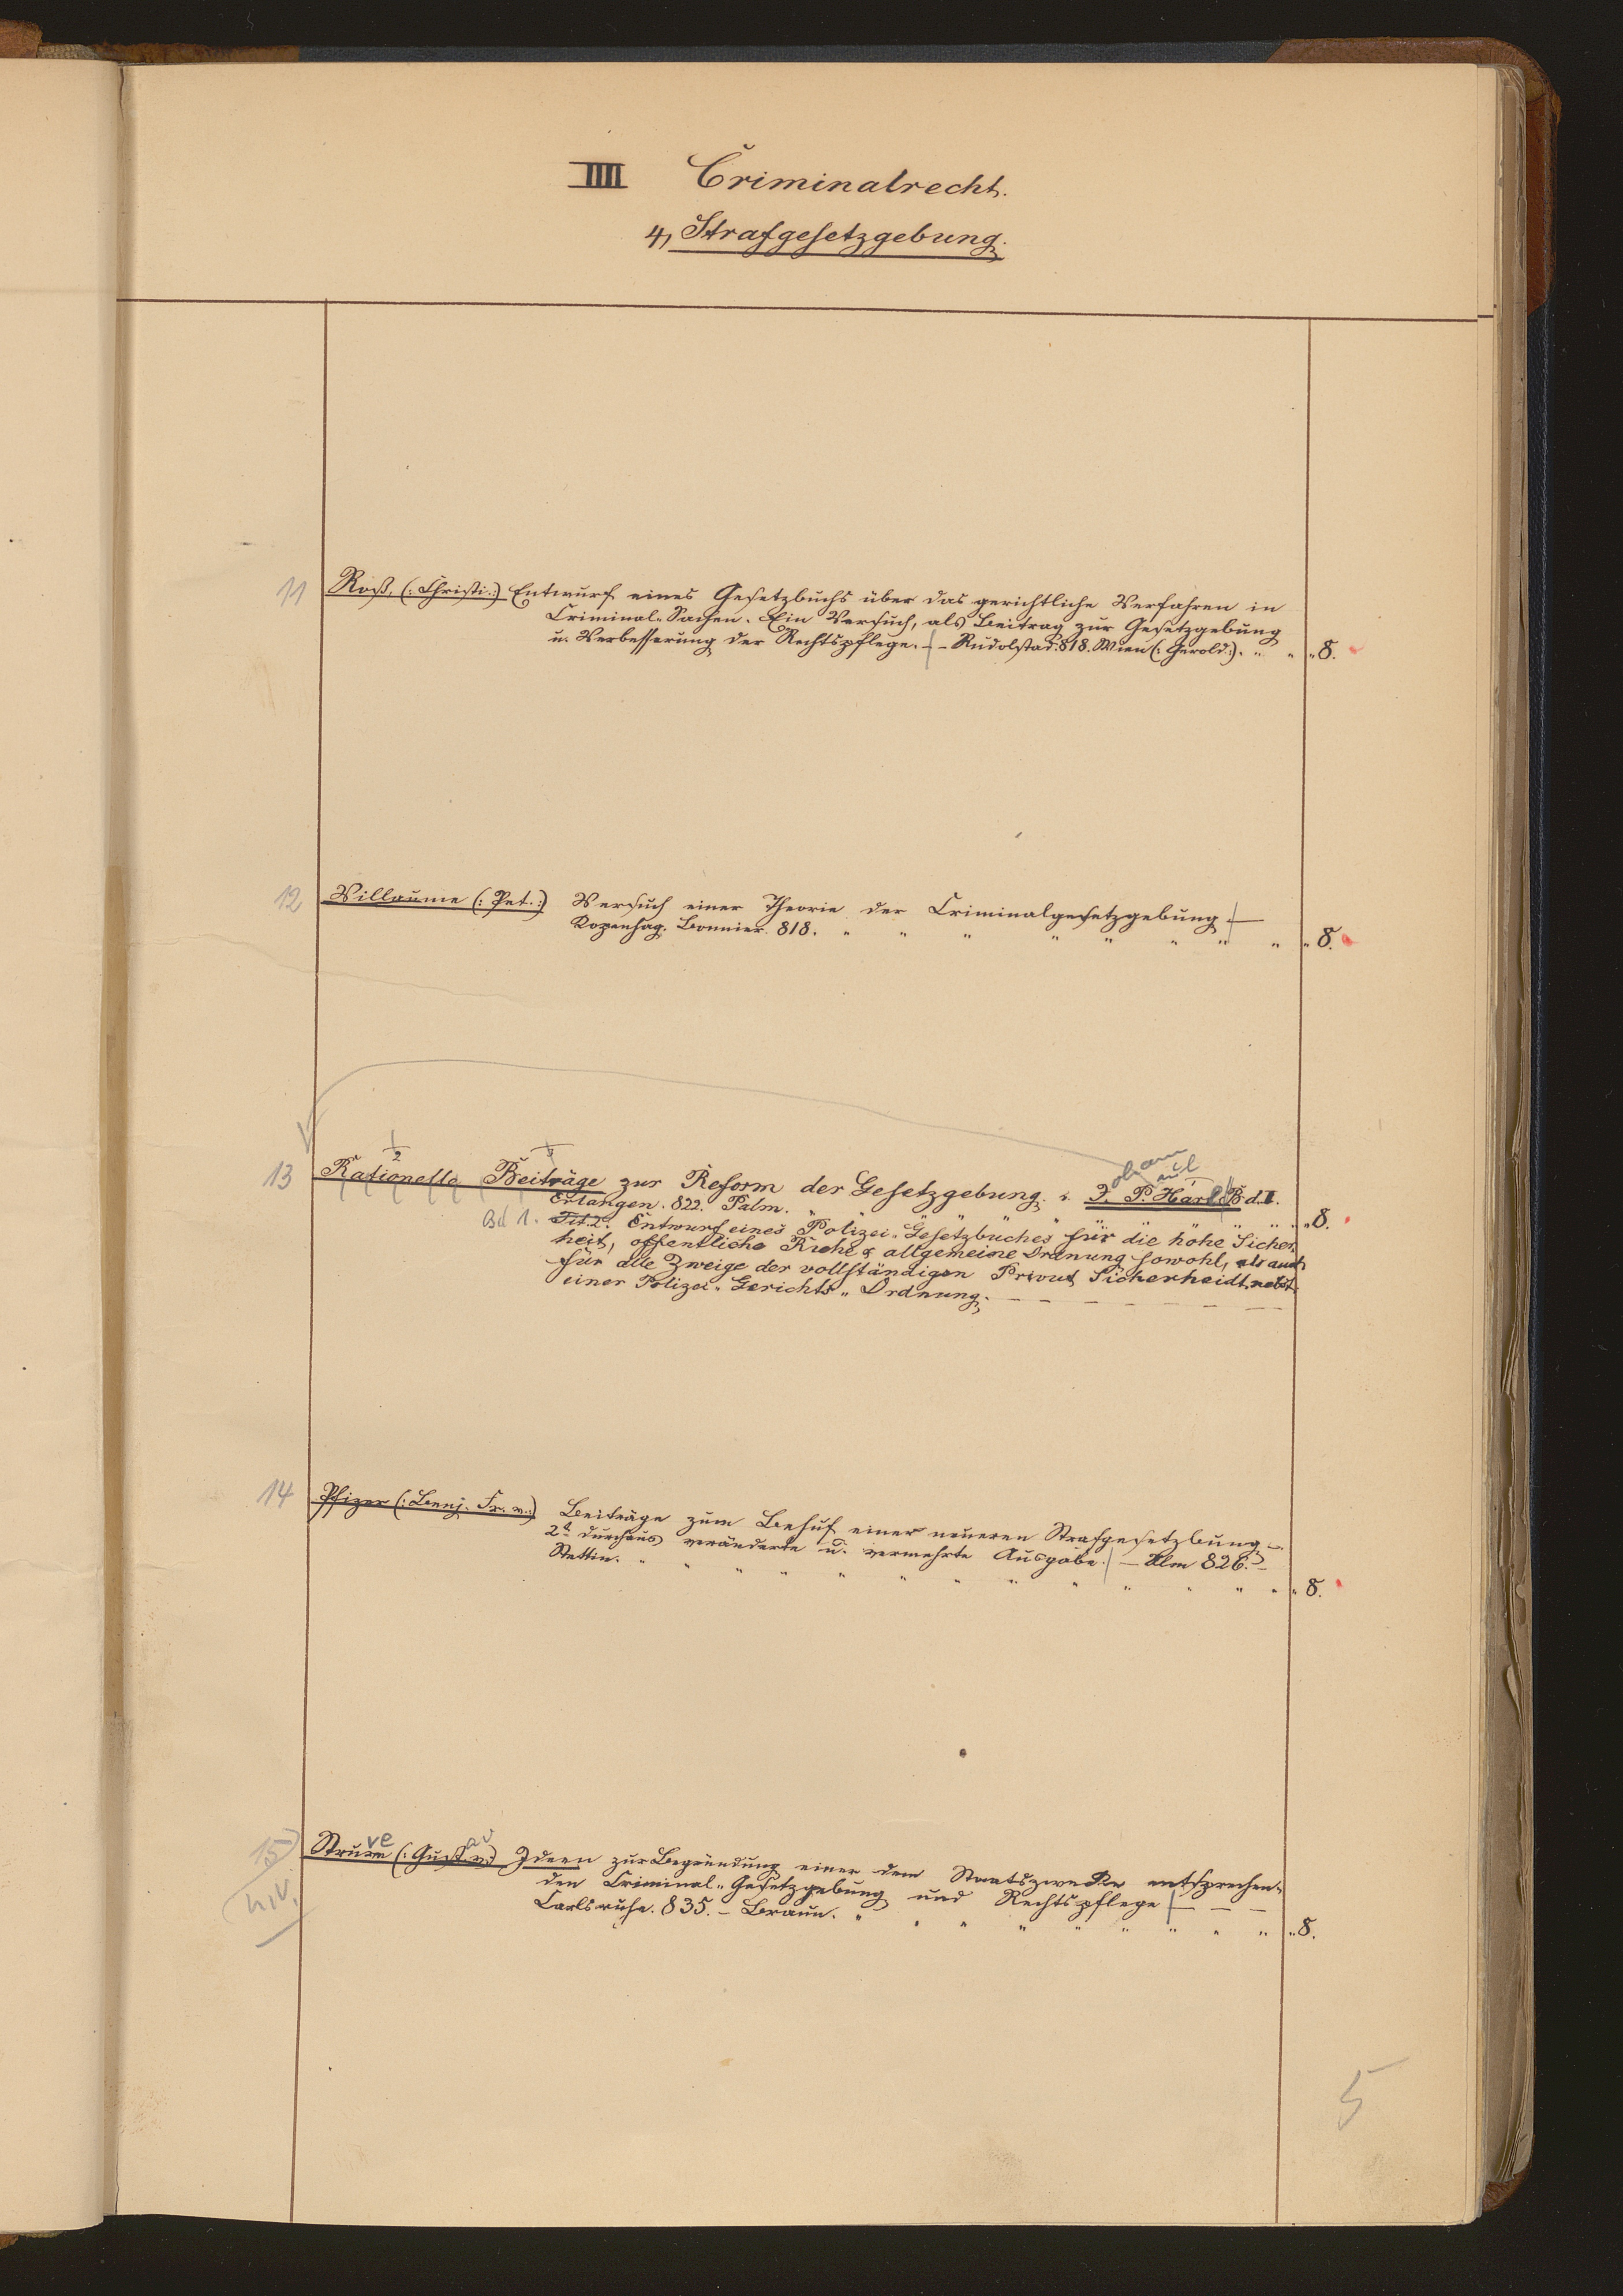 IIII Criminalrecht.
4, Strafgesetzgebung.
11 Roß. (: Christi.:) Entwurf eines Gesetzbuchs über das gerichtliche Verfahren in
Criminal-Sachen. Ein Versuch, als Beitrag zur Gesetzgebung
u. Verbesserung der Rechtspflege. – – Rudolstad. 818. Wien (: Gerold:). " " " 8.
12 Villaume (: Pet.:) Versuch einer Theorie der Criminalgesetzgebung. –
Kopenhag. Bonnier. 818. " " " " " " " " " 8.
oham aul
13 Rationelle Beiträge zur Reform der Gesetzgebung. v. J. P. Harl Bd. II.
Erlangen. 822. Palm. " " " " " " " " " 8.
Bd 1. Tit. 2. Entwurf eines Polizei-Gesetzbuches für die hohe Sicher-
heit, offentliche Ruhe & allgemeine Ordnung sowohl, als auch
für alle Zweige der vollständigen Privat Sicherheidt nebst
einer Polizei-Gerichts-Ordnung. – – – – – – – –
14 Pfizer (: Benj. Fr. v.:) Beiträge zum Behuf einer neueren Strafgesetzbung –.
2te durchaus veränderte u. vermehrte Ausgabe. – Ulm 826. –
Stettin. " " " " " " " " " " " " " 8.
ve av
15 Strum (: Gust. v.:) Ideen zur Begründung einer dem Staatszwecke entsprechen-
den Criminal-Gesetzgebung und Rechtspflege – – –
Carlsruhe. 835. – Braun. " " " " " " " " " 8.
5